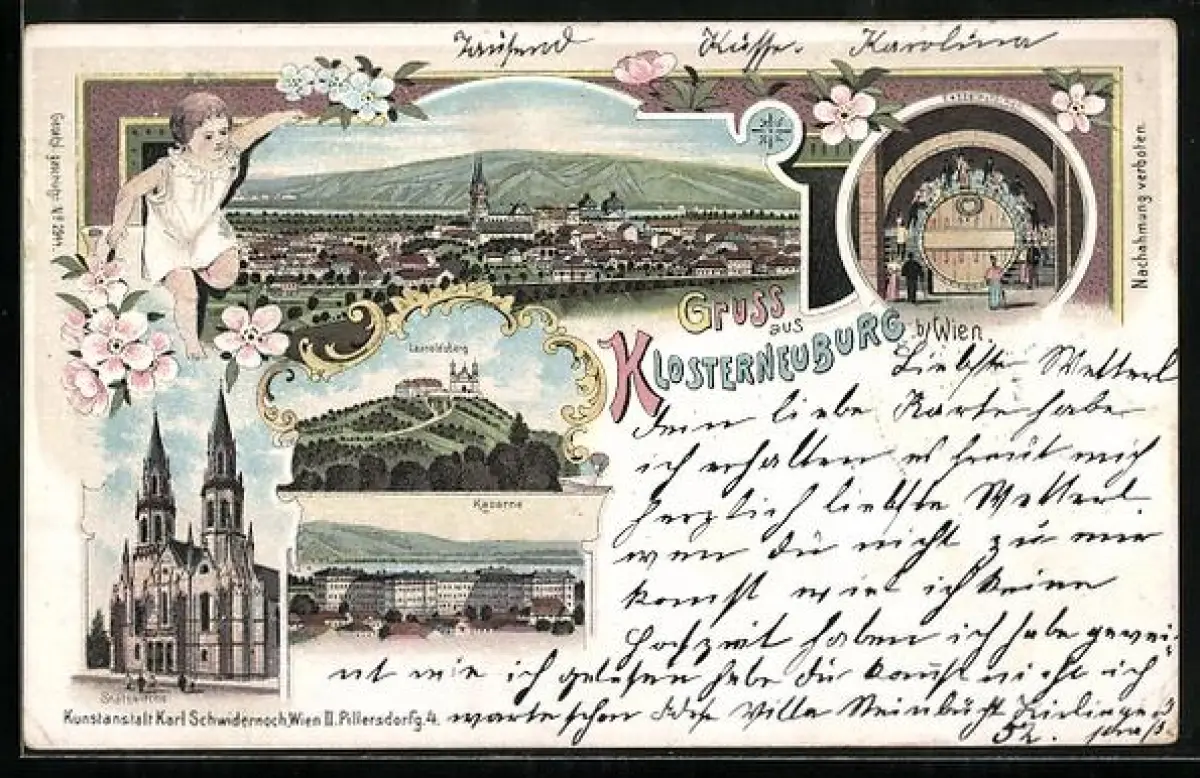 Tausend Küsse. Karolina
Gesetzl. geschützt Nº 2944.
Nachahmung verboten.
Gruss
aus
Klosterneuburg b/Wien.
Leopoldsberg
Kaserne
Stiftskirche
Kunstanstalt Karl Schwidernoch, Wien II. Pillersdorfg. 4.
Liebster Wetterl
dein liebe Karte habe
ich erhalten es freut mich
herzlich liebste Wetterl.
wen du nicht zu mir
komst wir ich keine
Hochzeit haben ich habe gewei-
nt wie ich gelesen habe du komst nicht ich
warte schon Villa
52.